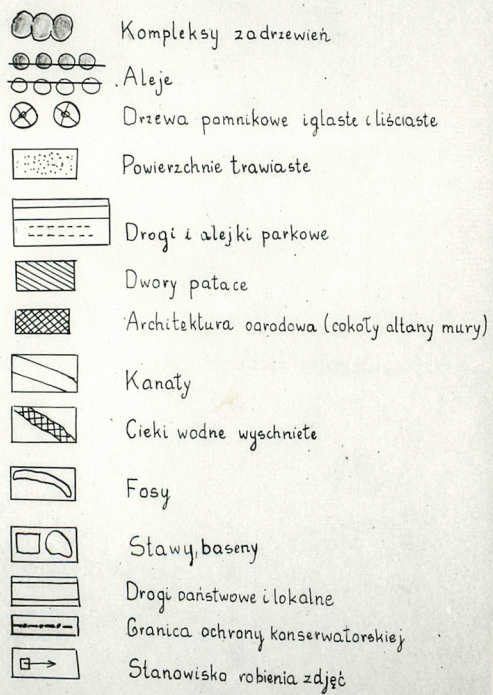 Kompleksy zadrzewień
Aleje
Drzewa pomnikowe iglaste i liściaste
Powierzchnie trawiaste
Drogi i alejki parkowe
Dwory pałace
Architektura ogrodowa (cokoły altany mury)
Kanały
Cieki wodne wyschnięte
Fosy
Stawy, baseny
Drogi państwowe i lokalne
Granica ochrony konserwatorskiej
Stanowisko robienia zdjęć